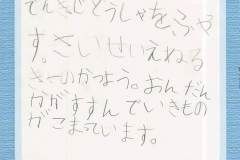 でんきじどうしゃをふや
す。さいせいえねる
ぎーいかつよう。おんだん
かがすすんでいきもの
がこまっています。